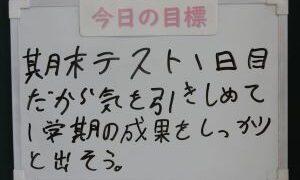 今日の目標
期末テスト1日目
だから気を引きしめて
1学期の成果をしっかり
と出そう。